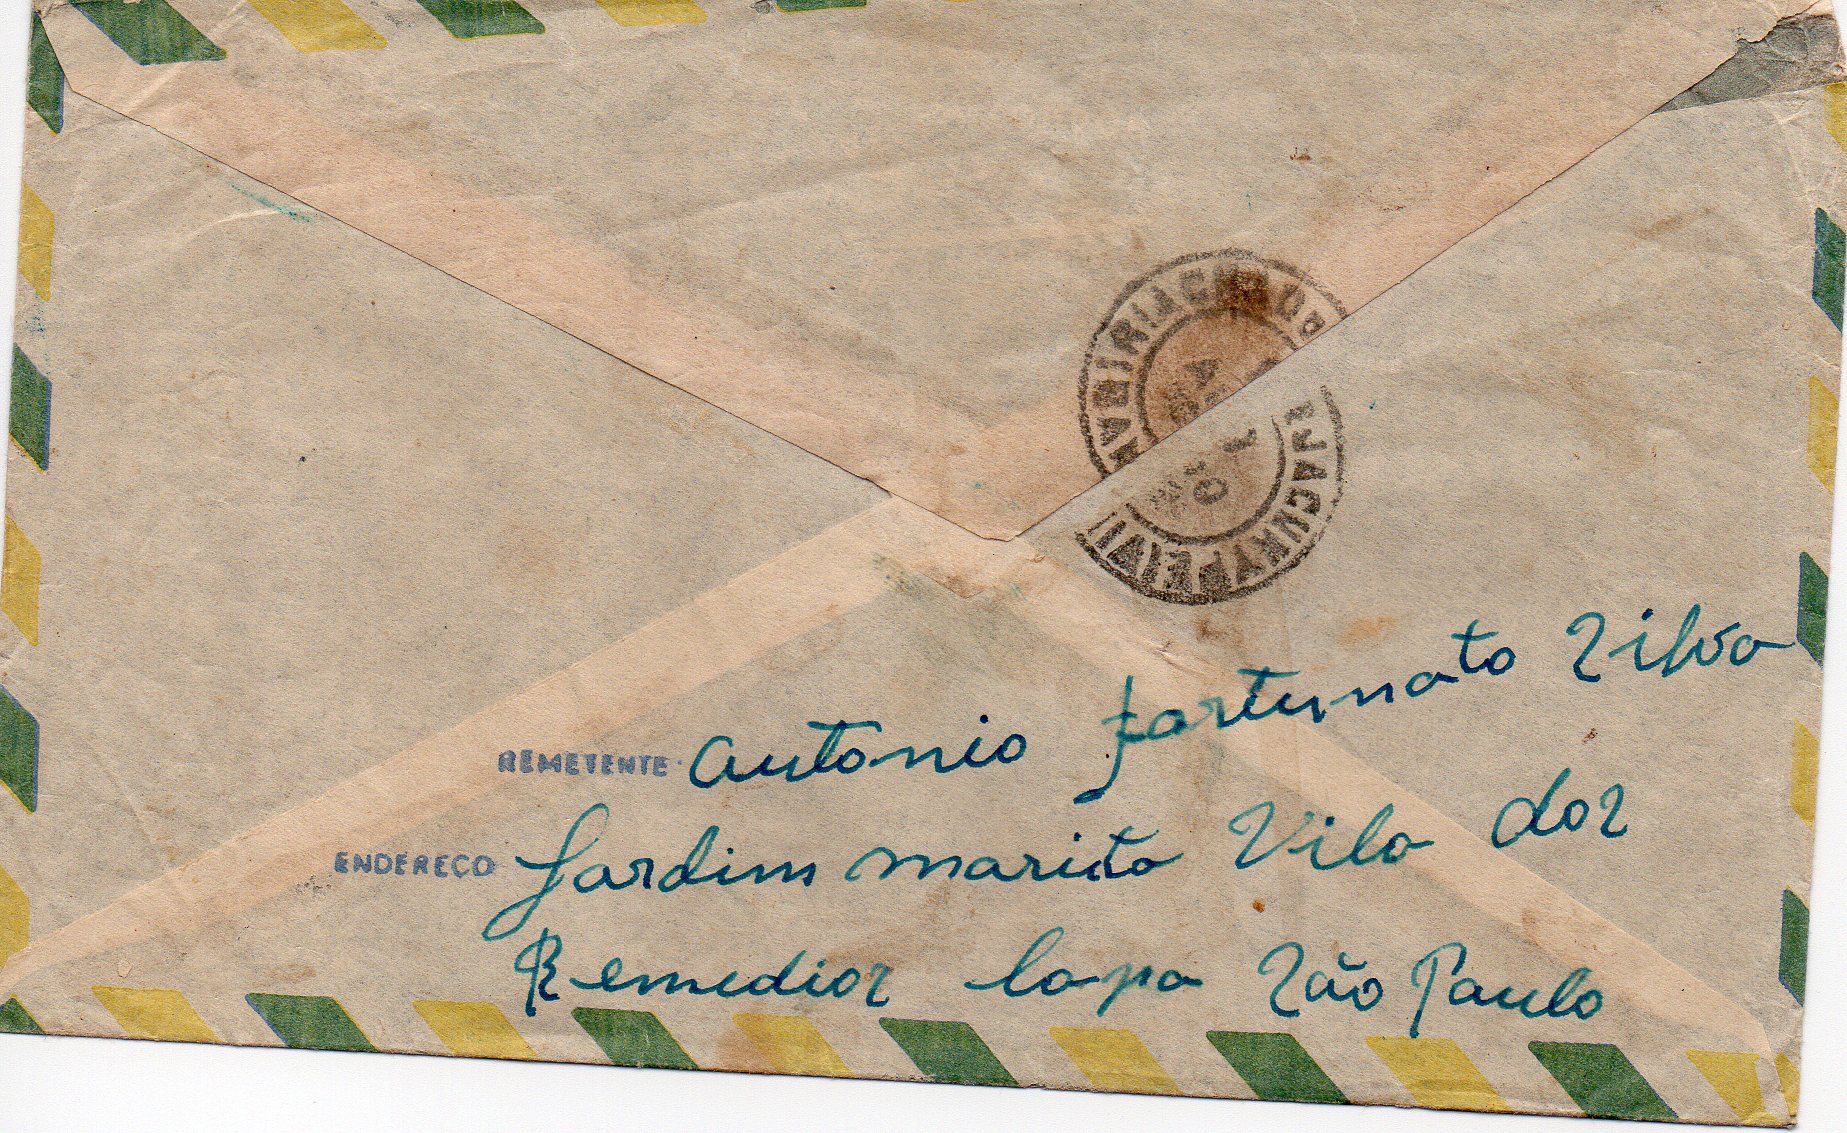 REMETENTE Antonio Fortunato Silva
ENDEREÇO Jardim marisa Vila dos
Remedios lapa São Paulo